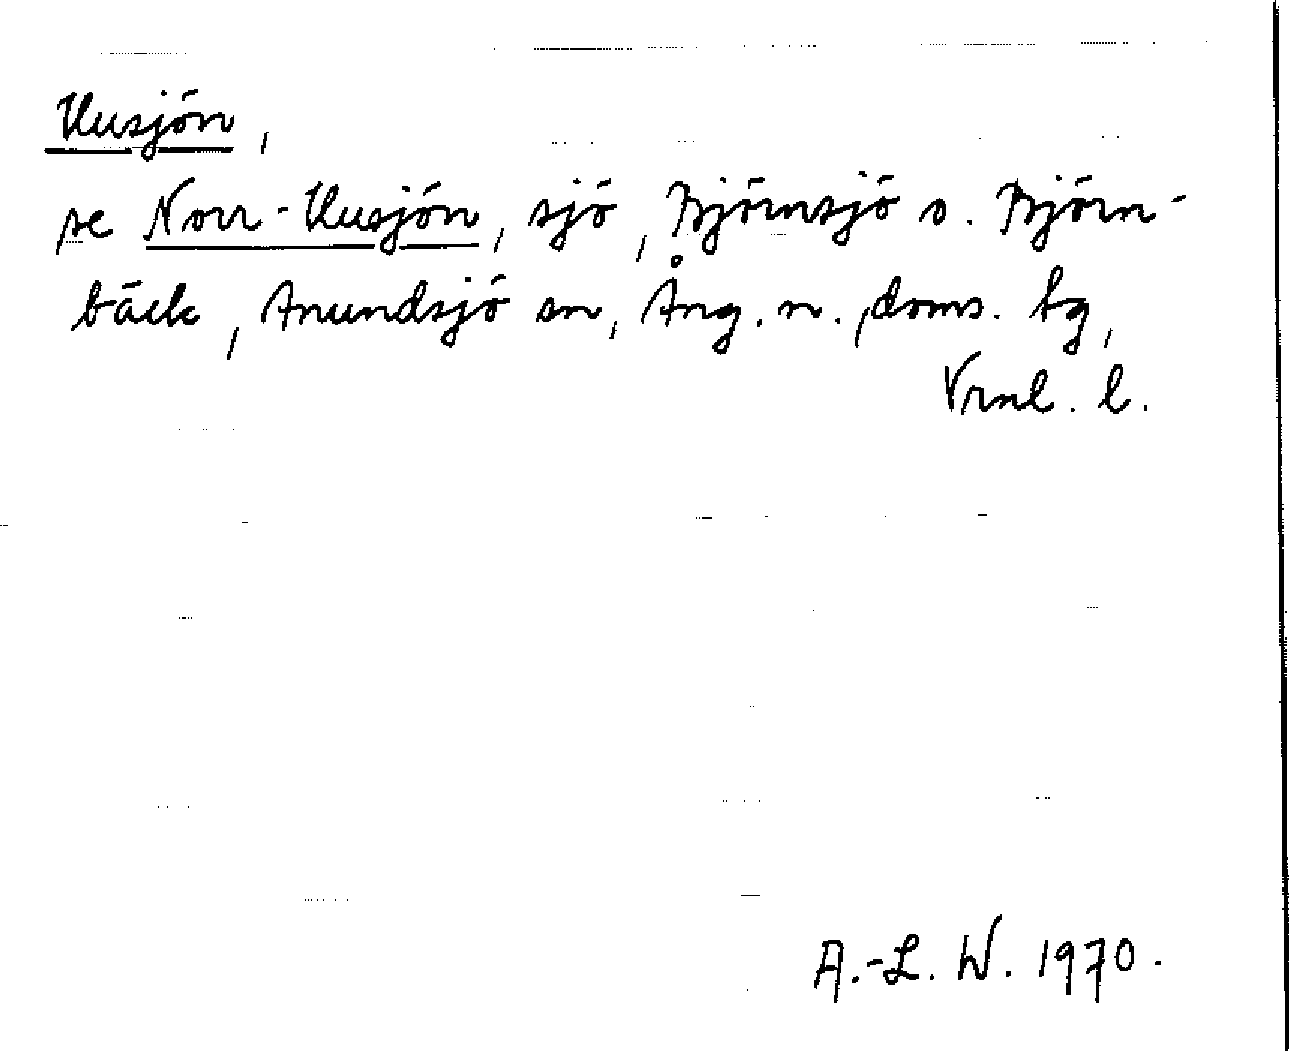 Husjön,
se Norr-Husjön, sjö, Björnsjö o. Björn-
bäck, Anundsjö sn, Ång. n. doms. tg,
Vrnl. l.
A.-L. W. 1970.